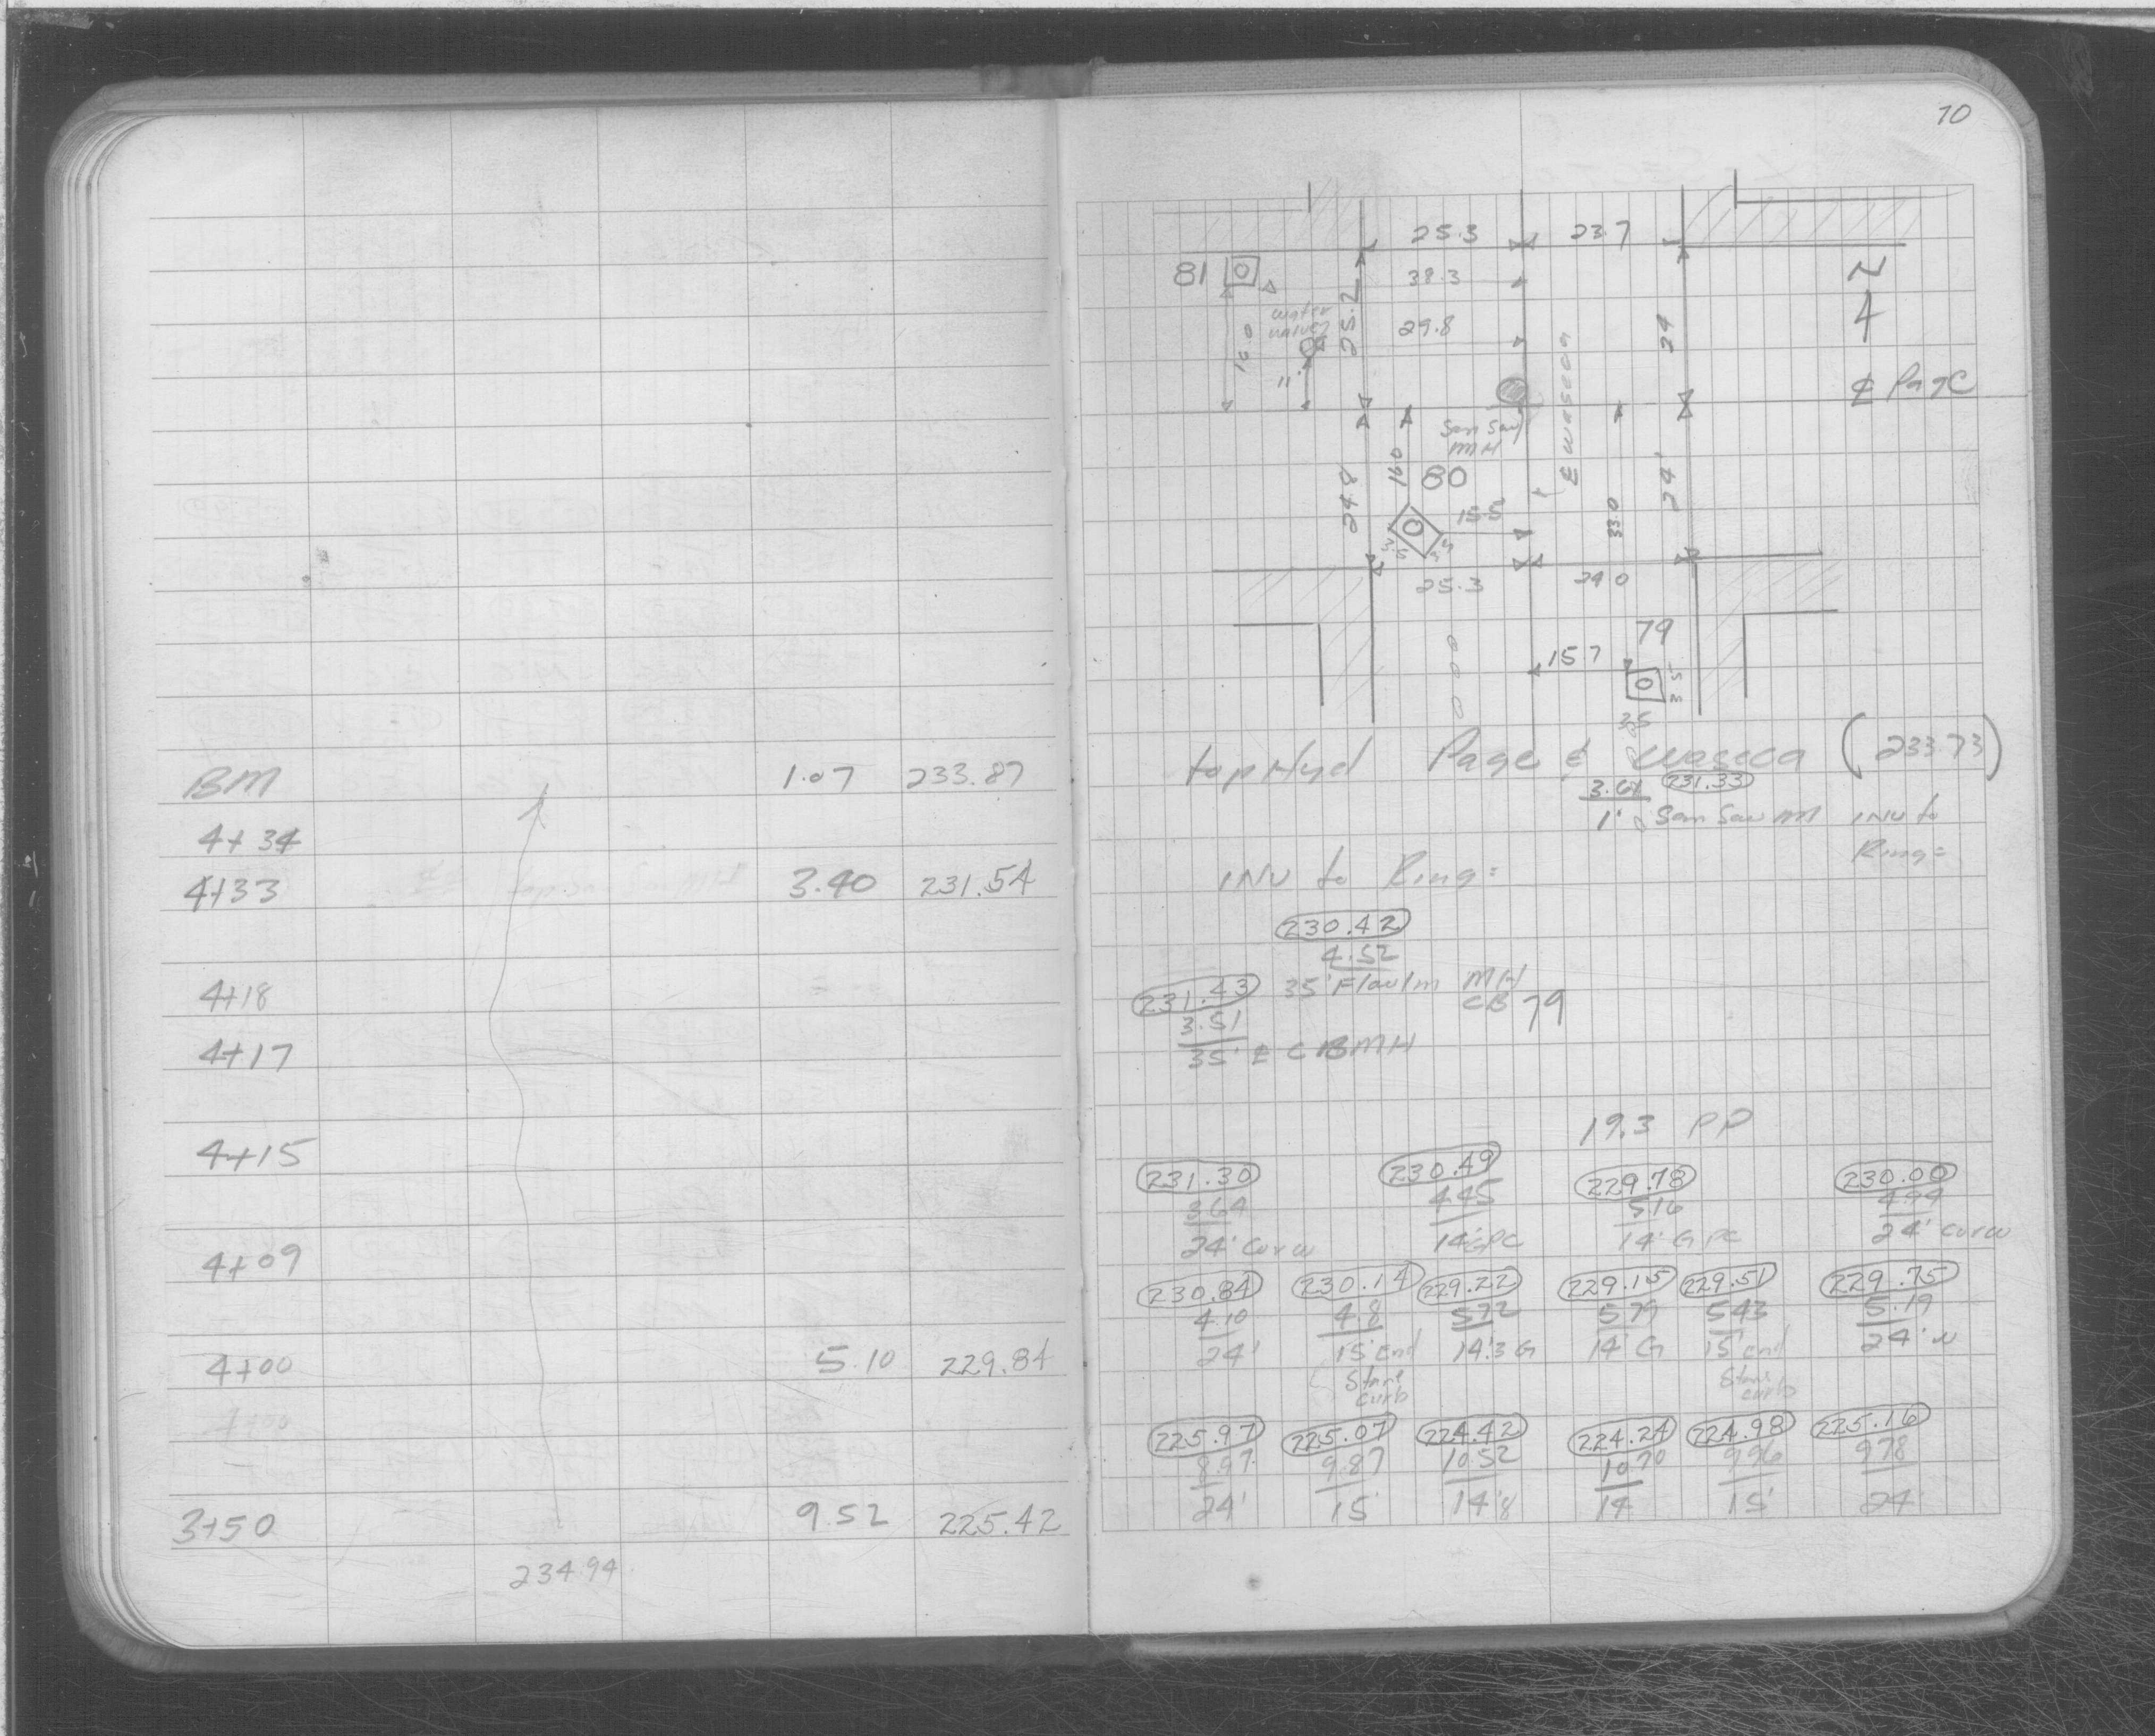 BM 1.07 233.87
4+34
4+33 3.40 231.54
4+18
4+17
4+15
4+09
4+00 5.10 229.84
4+00
3+50 9.52 225.42
234.94
70
25.3 23.7
81 38.3 N
water
valve
25.2 29.8 24
10.0
11'
¢ Waseca
¢ Page
San Sew
MH
24.8 16.0 80 24'
15.5 33.0
3.5
25.3 24.0
79
15.7
3.5
top Hyd Page & Waseca (233.73)
3.61 231.33
1' San Sew MH INV to
Ring=
INV to Ring=
230.42
4.52
231.43 35' Flowlm MH
CB 79
3.51
35' ¢ CBMH
19.3 PP
231.30 230.49 229.78 230.00
3.64 4.45 5.16 4.94
24' Curw 14' GPC 14' GPC 24' Curw
230.84 230.14 229.22 229.15 229.51 229.75
4.10 4.8 5.72 5.79 5.43 5.19
24' 15' End 14'.3 G 14' G 15' End 24' w
Stone Stone
curb curb
225.97 225.07 224.42 224.24 224.98 225.16
8.97 9.87 10.52 10.70 9.96 9.78
24' 15' 14'.8 14 15' 24'